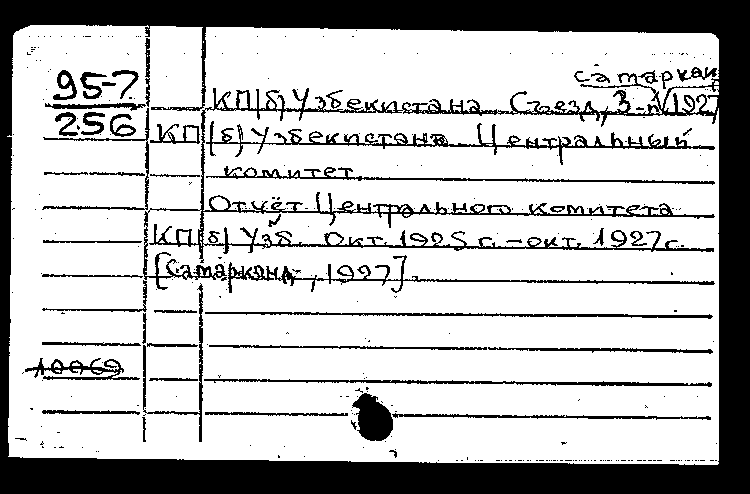 95-7
256
Самарканд
КП(б) Узбекистана. Съезд, 3-й, 1927
КП(б) Узбекистана. Центральный
комитет.
Отчёт Центрального комитета
КП(б) Узб. Окт. 1925 г. – окт. 1927 г.
[Самарканд, 1927].
10069